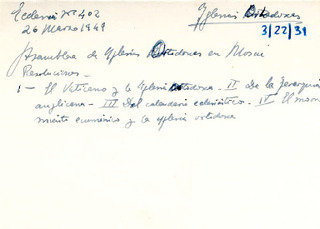 Ecclesia Nº 402
Iglesias Ortodoxas
26 Marzo 1949
3/22/31
Asamblea de Iglesias Ortodoxas en Moscú
Resoluciones -
1 - El Vaticano y la Iglesia Ortodoxa. II De la Jerarquia
anglicana - III Del calendario eclesiástico. IV El movi
miento ecuménico y la iglesia ortodoxa